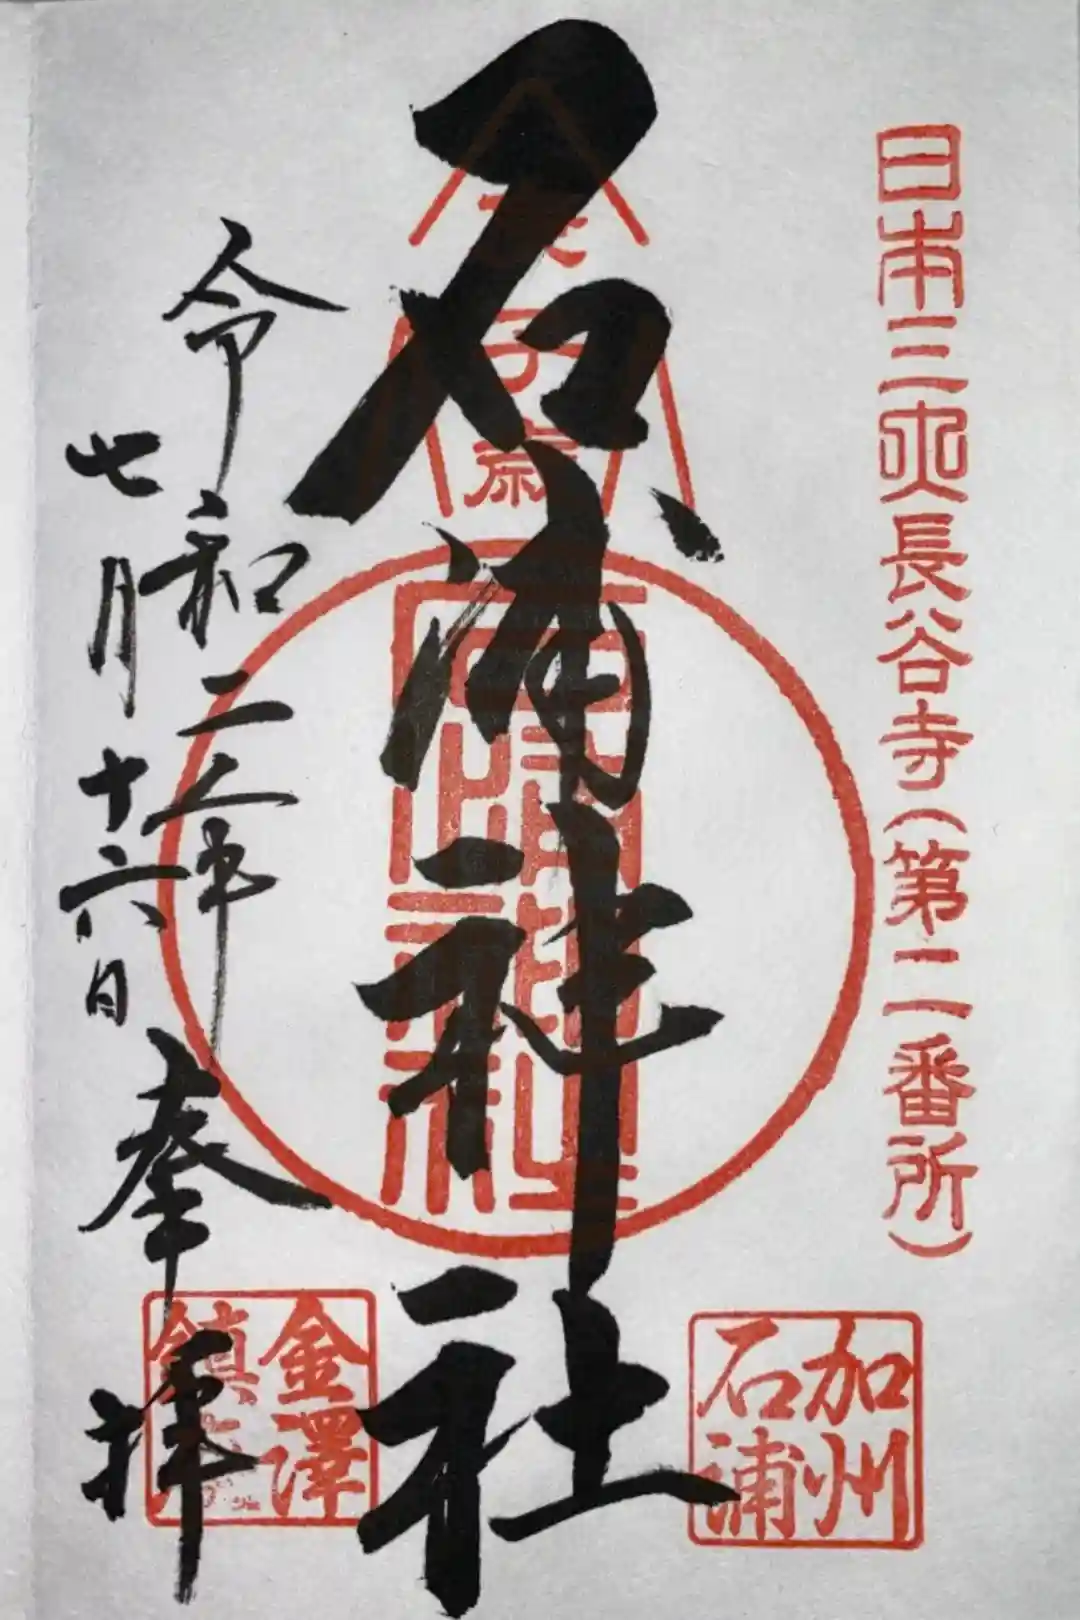 日本三大長谷寺(第二番所)
加州
石浦
石浦神社
石浦神社
令和二年
七月十六日
奉拝
金澤